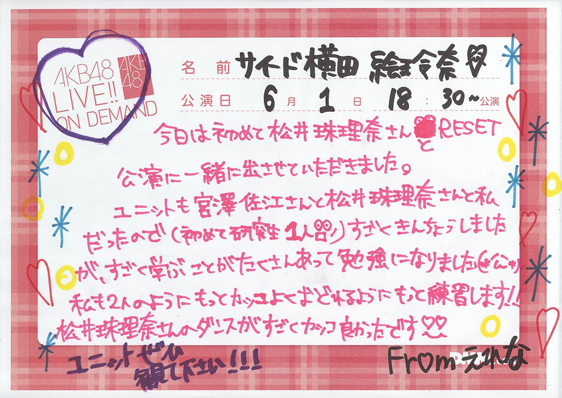 AKB48
LIVE!!
ON DEMAND
AKB
48
名前 サイード横田 絵玲奈
公演日 6月1日 18:30~公演
今日は初めて松井珠理奈さんとRESET
公演に一緒に出させていただきました。
ユニットも宮澤佐江さんと松井珠理奈さんと私
だったので(初めて研究生1人!!)すごくきんちょうしました
が、すごく学ぶことがたくさんあって勉強になりました
私も2人のようにもっとカッコよくおどれるようにもっと練習します!!
松井珠理奈さんのダンスがすごくカッコ良かったです♡♡
ユニットぜひ
観て下さい!!!
From えれな